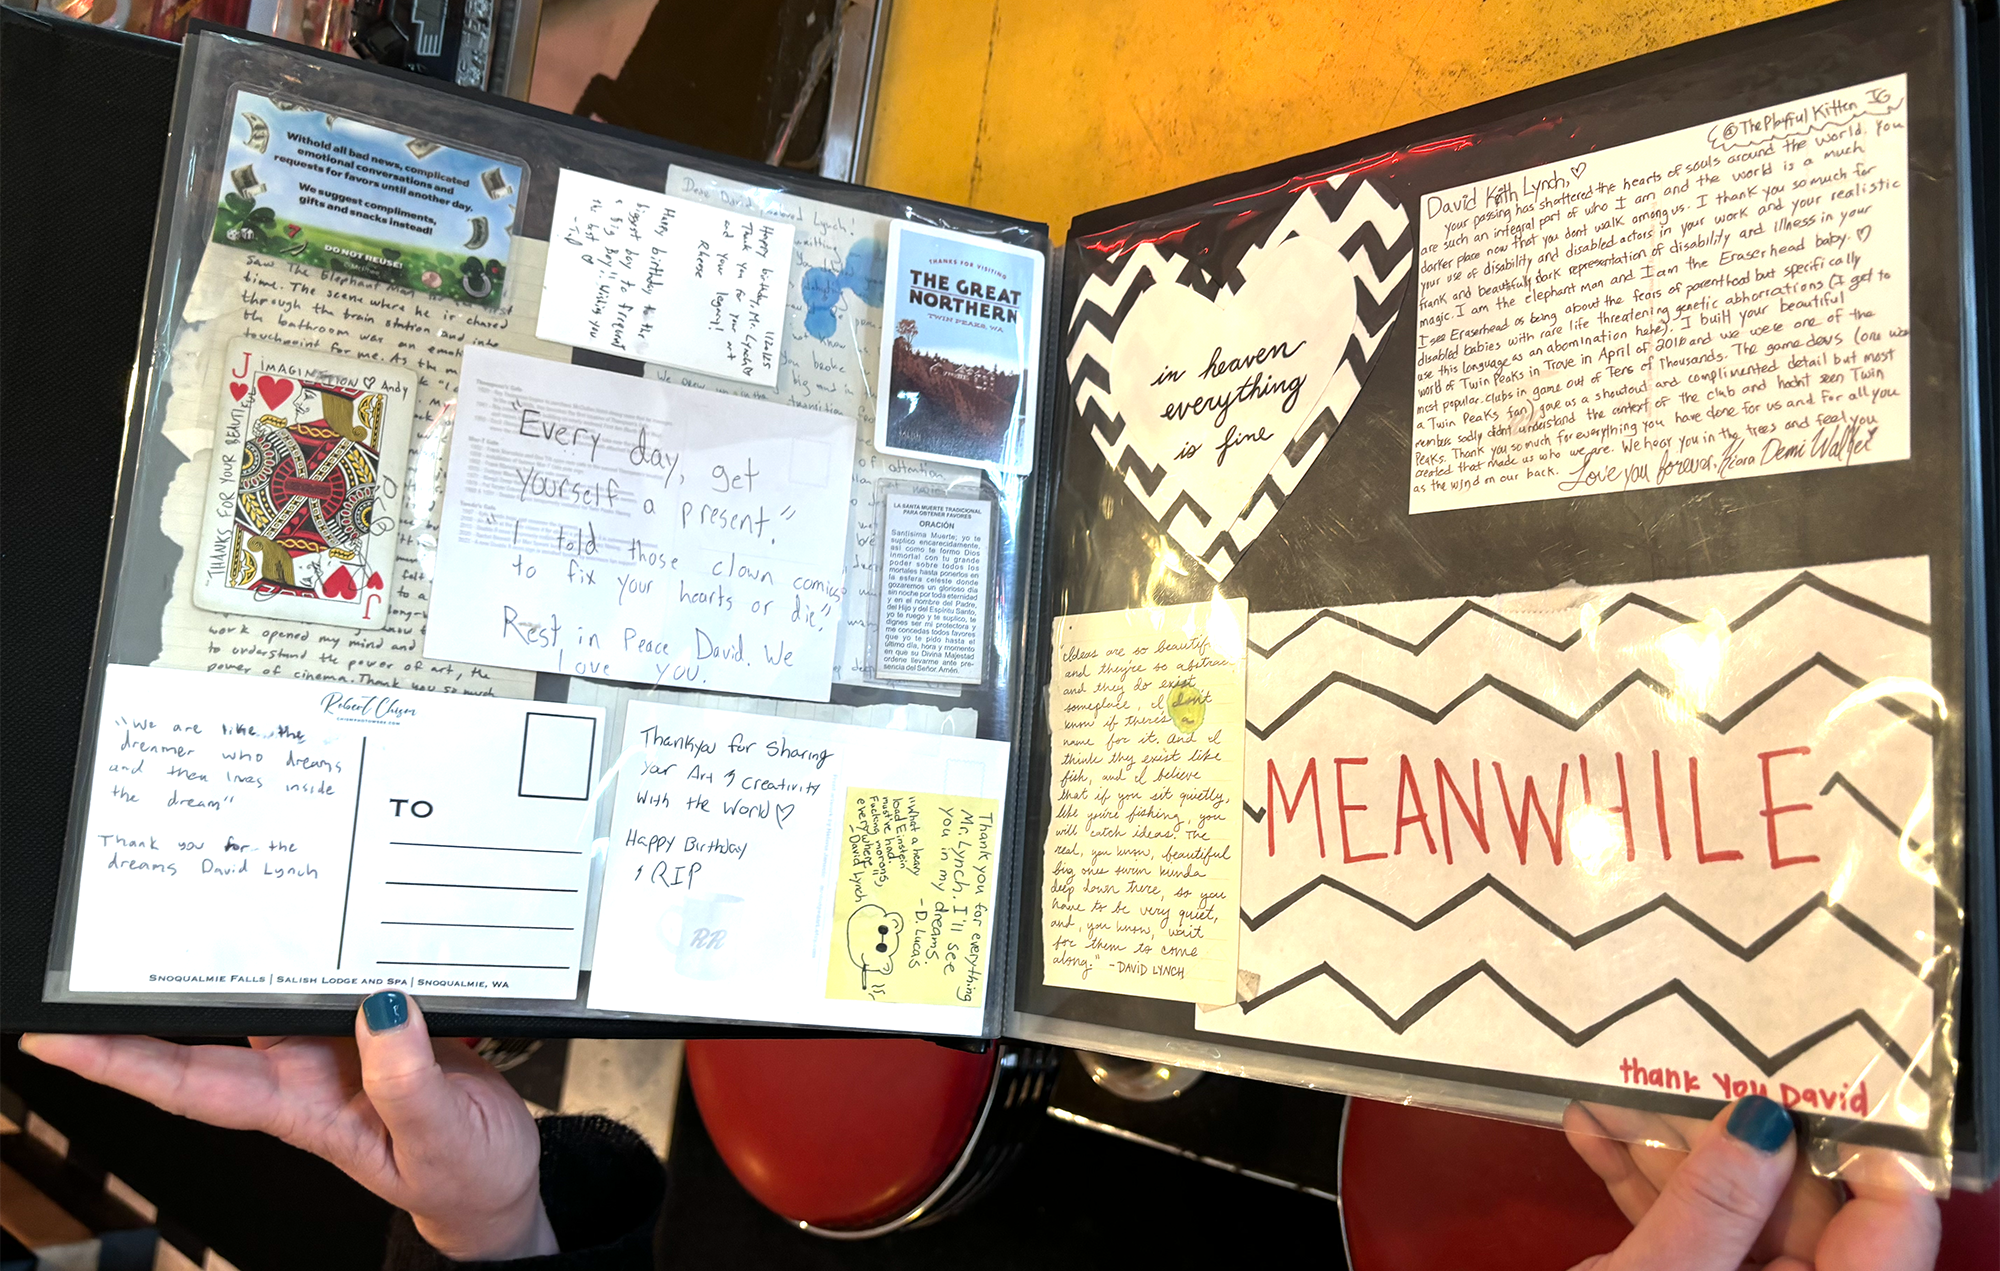 Withold all bad news, complicated
emotional conversations and
requests for favors until another day.
We suggest compliments,
gifts and snacks instead!
DO NOT REUSE!
saw The Elephant Man
time. The scene where he is chased
through the train station and into
the bathroom was an
touchpoint for me. As the
work opened my mind and
to understand the power of art, the
power of cinema. Thank you so much
J IMAGINATION ♡ Andy
"THANKS FOR YOUR BEAUTIFUL
J
Happy birthday to the
biggest day to frequent
a Big Boy!! Wishing you
the best
11/20/25
Happy birthday, Mr. Lynch
Thank you for your art
and your legacy!
Reese
Dear David Lynch!
THANKS FOR VISITING
THE GREAT
NORTHERN
TWIN PEAKS, WA
"Every day, get
yourself a present."
"I told those clown comics
to fix your hearts or die."
Rest in Peace David. We
love you.
of attention
LA SANTA MUERTE TRADICIONAL
PARA OBTENER FAVORES
ORACIÓN
Santísima Muerte; yo te
suplico encarecidamente,
así como te formo Dios
inmortal con tu grande
poder sobre todos los
mortales hasta ponerlos en
la esfera celeste donde
gozaremos un glorioso día
sin noche por toda eternidad
y en el nombre del Padre,
del Hijo y del Espíritu Santo,
yo te ruego y te suplico, te
dignes ser mi protectora y
me concedas todos favores
que yo te pido hasta el
último día, hora y momento
en que su Divina Majestad
ordene llevarme ante pre-
sencia del Señor. Amén.
Robert Chison
"We are like the
dreamer who dreams
and then lives inside
the dream"
Thank you for the
dreams David Lynch
TO
SNOQUALMIE FALLS | SALISH LODGE AND SPA | SNOQUALMIE, WA
Thankyou for Sharing
Your Art & Creativity
With the World ♡
Happy Birthday
& RIP
RR
Thank you for everything
Mr. Lynch. I'll see
you in my dreams.
- D. Lucas
"What a heavy
load Einstein
must've had.
Fucking morons,
everywhere"
-David Lynch
in heaven
everything
is fine
@ThePlayful Kitten IG
David Keith Lynch, ♡
your passing has shattered the hearts of souls around the world. You
are such an integral part of who I am and the world is a much
darker place now that you dont walk among us. I thank you so much for
your use of disability and disabled actors in your work and your realistic
frank and beautifully dark representation of disability and illness in your
magic. I am the elephant man and I am the Eraserhead baby. ♡
I see Eraserhead as being about the fears of parenthood but specifically
disabled babies with rare life threatening genetic abhorrations (I get to
use this language as an abomination hehe). I built your beautiful
world of Twin Peaks in Trove in April of 2016 and we were one of the
most popular clubs in game out of Tens of Thousands. The game devs (one was
a Twin Peaks fan) gave as a shoutout and complimented detail but most
members sadly didnt understand the context of the club and hadnt seen Twin
Peaks. Thank you so much for everything you have done for us and for all you
created that made us who we are. We hear you in the trees and feel you
as the wind on our back. Love you forever, Kiara Demi Walker
"Ideas are so beautiful
and they're so abstract
and they do exist
someplace, I don't
know if there's a
name for it. And I
think they exist like
fish, and I believe
that if you sit quietly,
like you're fishing, you
will catch ideas. The
real, you know, beautiful
big ones swim kinda
deep down there, so you
have to be very quiet,
and, you know, wait
for them to come
along." -DAVID LYNCH
MEANWHILE
thank you David